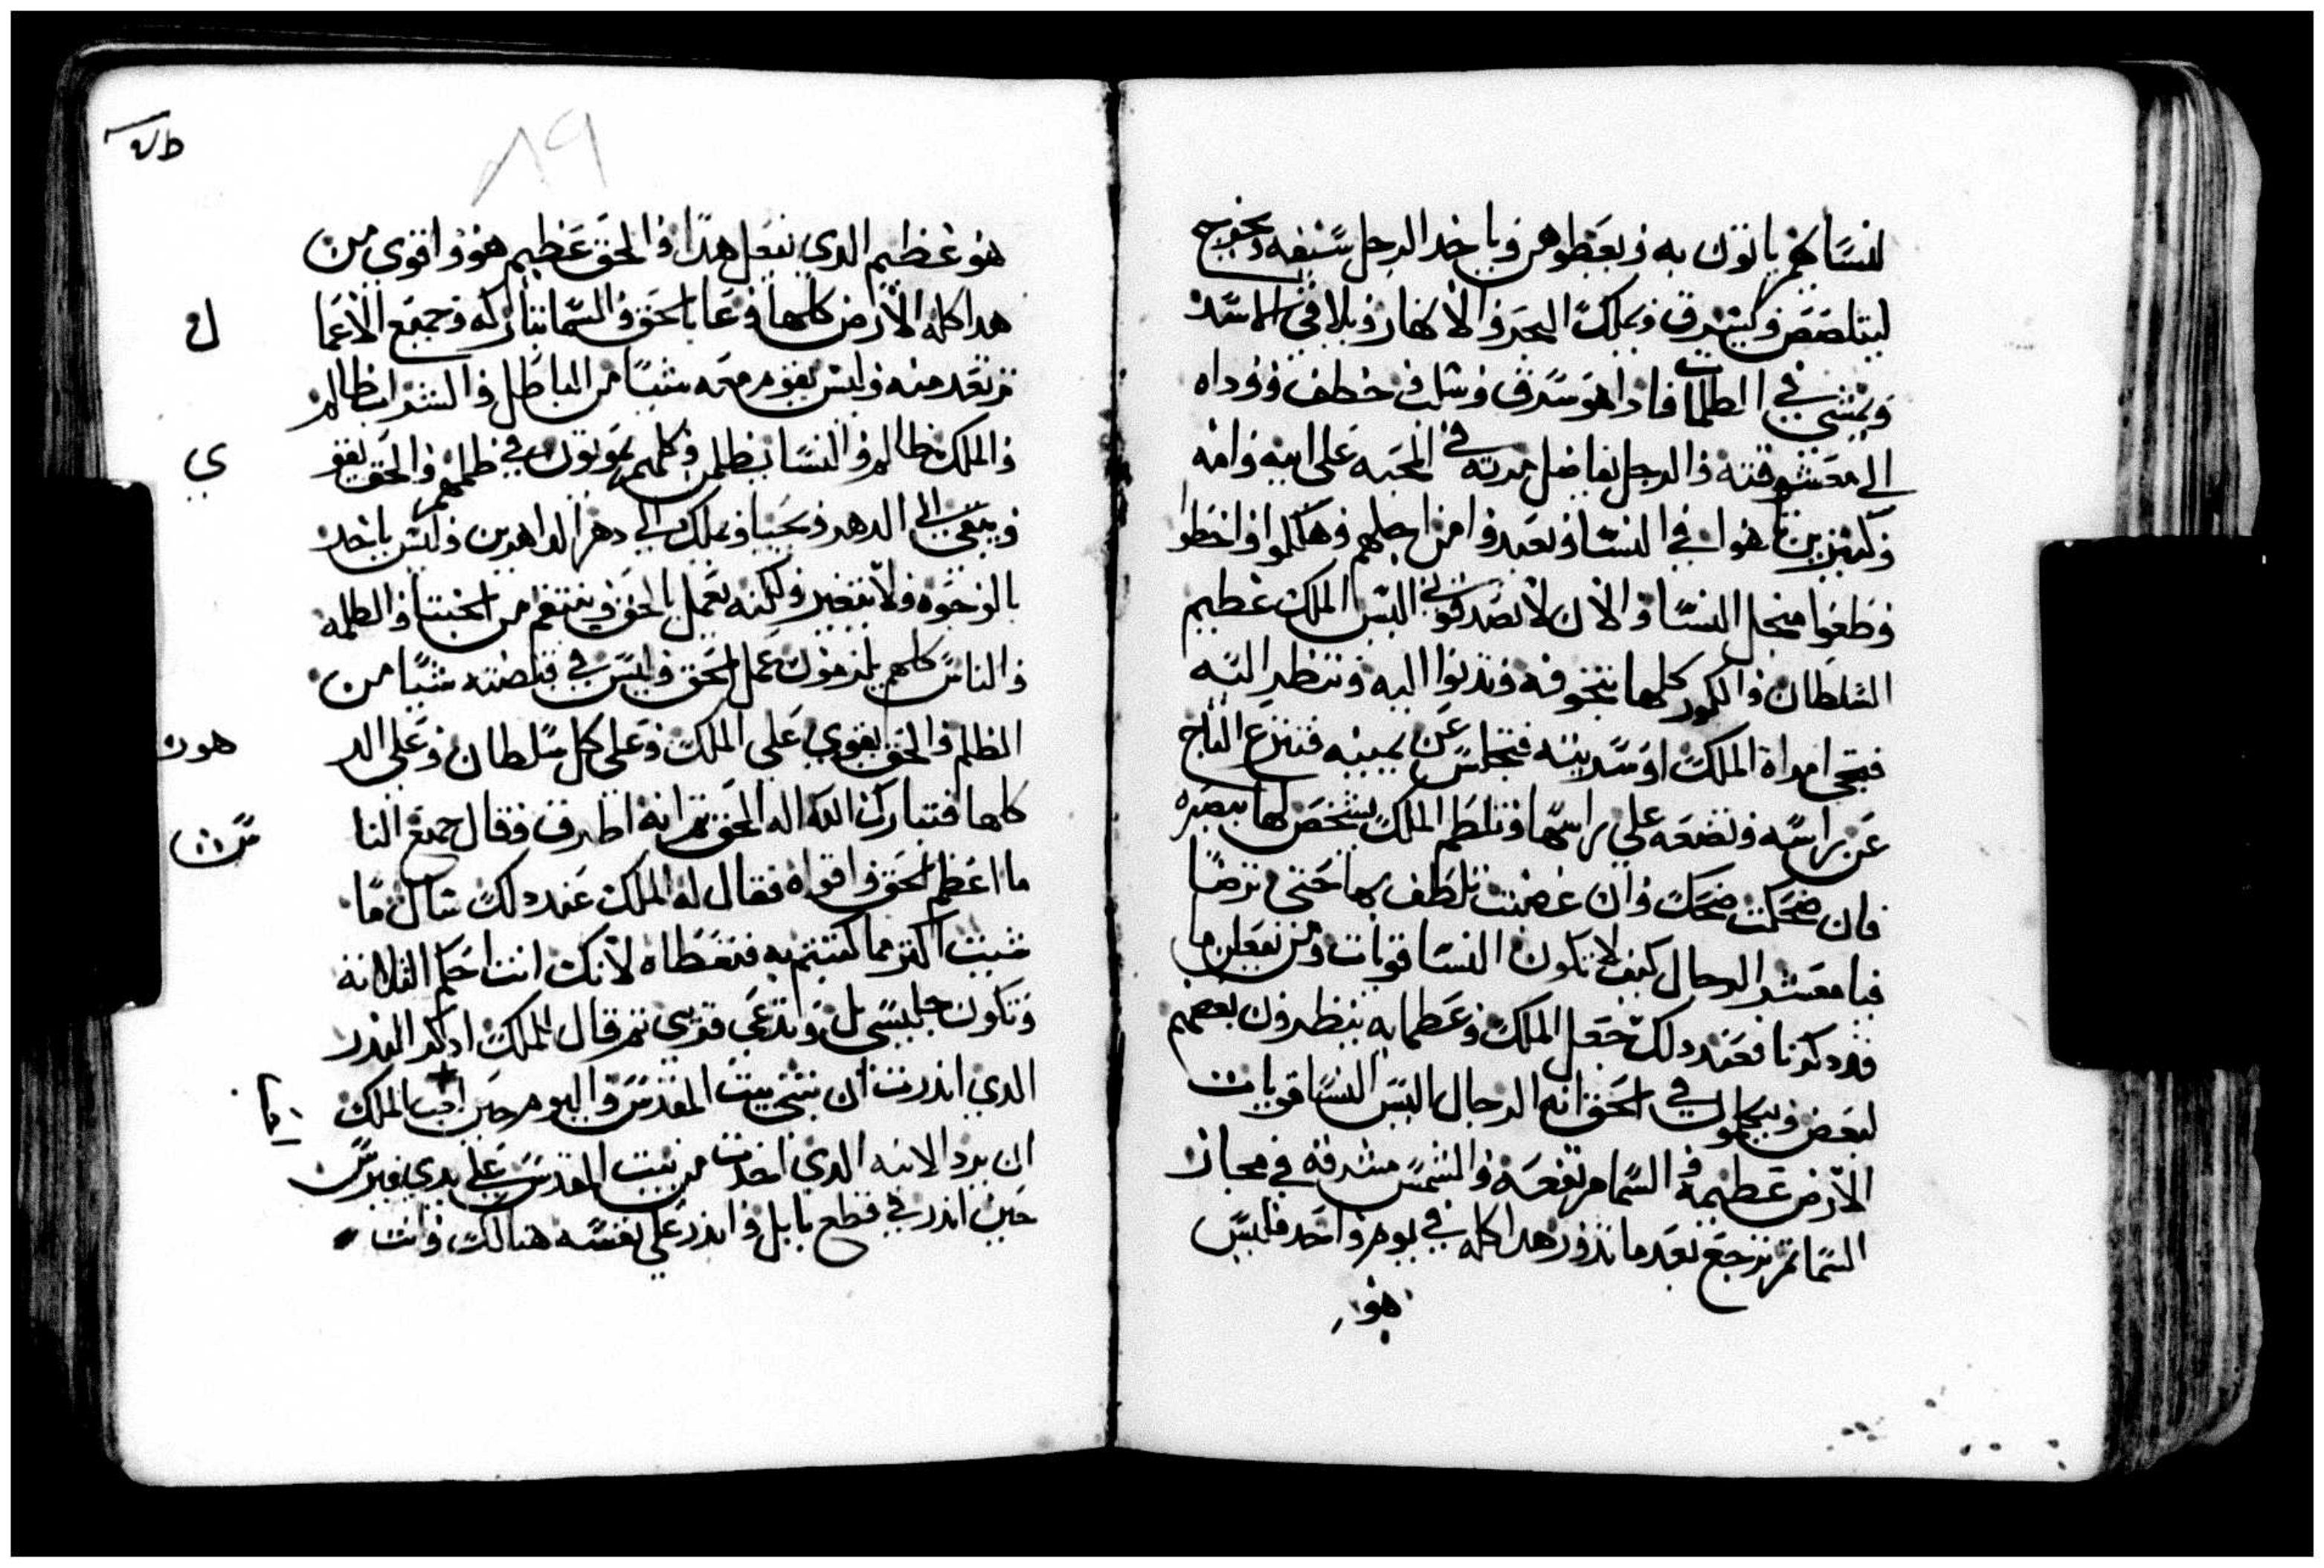 لنساهم ياتون به ويعطوهن وياخد الرجل سيفه ويخرج
ليتلصص وليسرق ويملك البحر والانهار ويلاقي الاسد
ويمشي في الظلمات فادا هو سرق وسلب وخطف ووداه
الي معشوقته والرجل يفاضل مرته في المحبه علي ابيه وامه
وكتيرين تاهوا في النسا وتعبدوا من اجلهم وهكلوا واخطوا
وطغوا من اجل النسا والان لا تصدقوني اليس الملك عظيم
السلطان والكور كلها تتخوفه وتدنوا اليه وتنظر اليه
فتجي امراة الملك او سريته فتجلس عن يمينه فتنزع التاج
عن راسه وتضعه علي راسها وتلطم الملك يشخص لها ببصره
فان ضحكت ضحك وان غضبت تلطف بها حتي ترضا
فيا معشر الرجال كيف لا تكون النسا قويات وهن يفعلن ما
قد دكرنا فعند دلك جعل الملك وعظمايه ينظرون بعضهم
لبعض ويتكلمون في الحق ايها الرجال اليس النسا قويات
الارض عظيمه والسما مرتفعه والشمس مشرقه في مجاز
السما ثم ترجع بعد ما تدور هدا كله في يوم واحد فليس
هو
٨٩
هو عظيم الدي يفعل هدا والحق عظيم هو واقوي من
هدا كله الارض كلها دعا بالحق والسما تباركه وجميع الاعما
ل
ترتعد منه وليس يقوم معه شيا من الباطل والشراب ظالم
والملك ظالم والنسا يظلمن وكلهم يموتون في ظلمهم والحق يقو
ي
ويبقي الي الدهر ويحيا ويملك الي دهر الداهرين وليس ياخد
بالوجوه ولا يتغير ولكنه يعمل بالحق وينتقم من الخبثا والظلمه
والناس كلهم يلزمون عمل الحق وليس في قبضته شيا من
الظلم والحق يقوي علي الملك وعلي كل سلطان وعلي الد
هور
كلها فتبارك الله اله الحق ثم انه اطرق فقال جميع النا
س
ما اعظم الحق واقواه فقال له الملك عند دلك سال ما
شيت اكتر مما كتبتم به فتعطاه لانك انت احكم التلاته
وتكون جليسي وتدعي قريبي ثم قال للملك ادكر الندر
الدي اندرت ان تبني بيت المقدس واليوم حين اجب الملك
ان يرد الانيه الدي اخدت من بيت المقدس علي يدي فيرس
حين اندر في قطع بابل واندر علي نفسه هنالك وانت